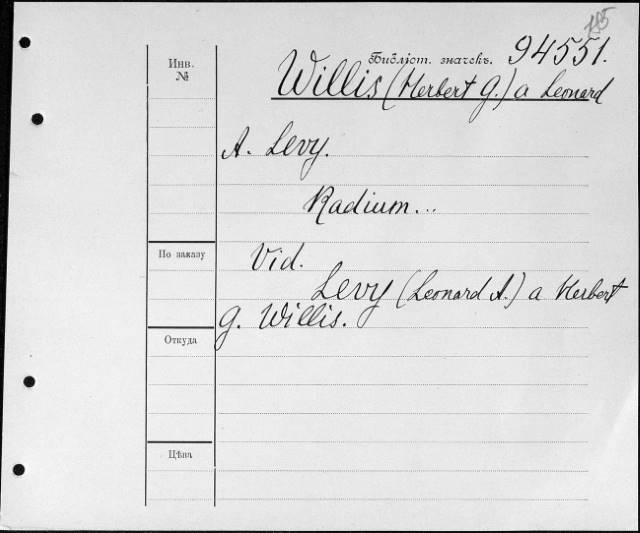 Инв.
№
Библіот. значекъ. 94551.
Willis (Herbert G.) a Leonard
A. Levy.
Radium...
По заказу
Vid.
Levy (Leonard A.) a Herbert
G. Willis.
Откуда
Цѣна